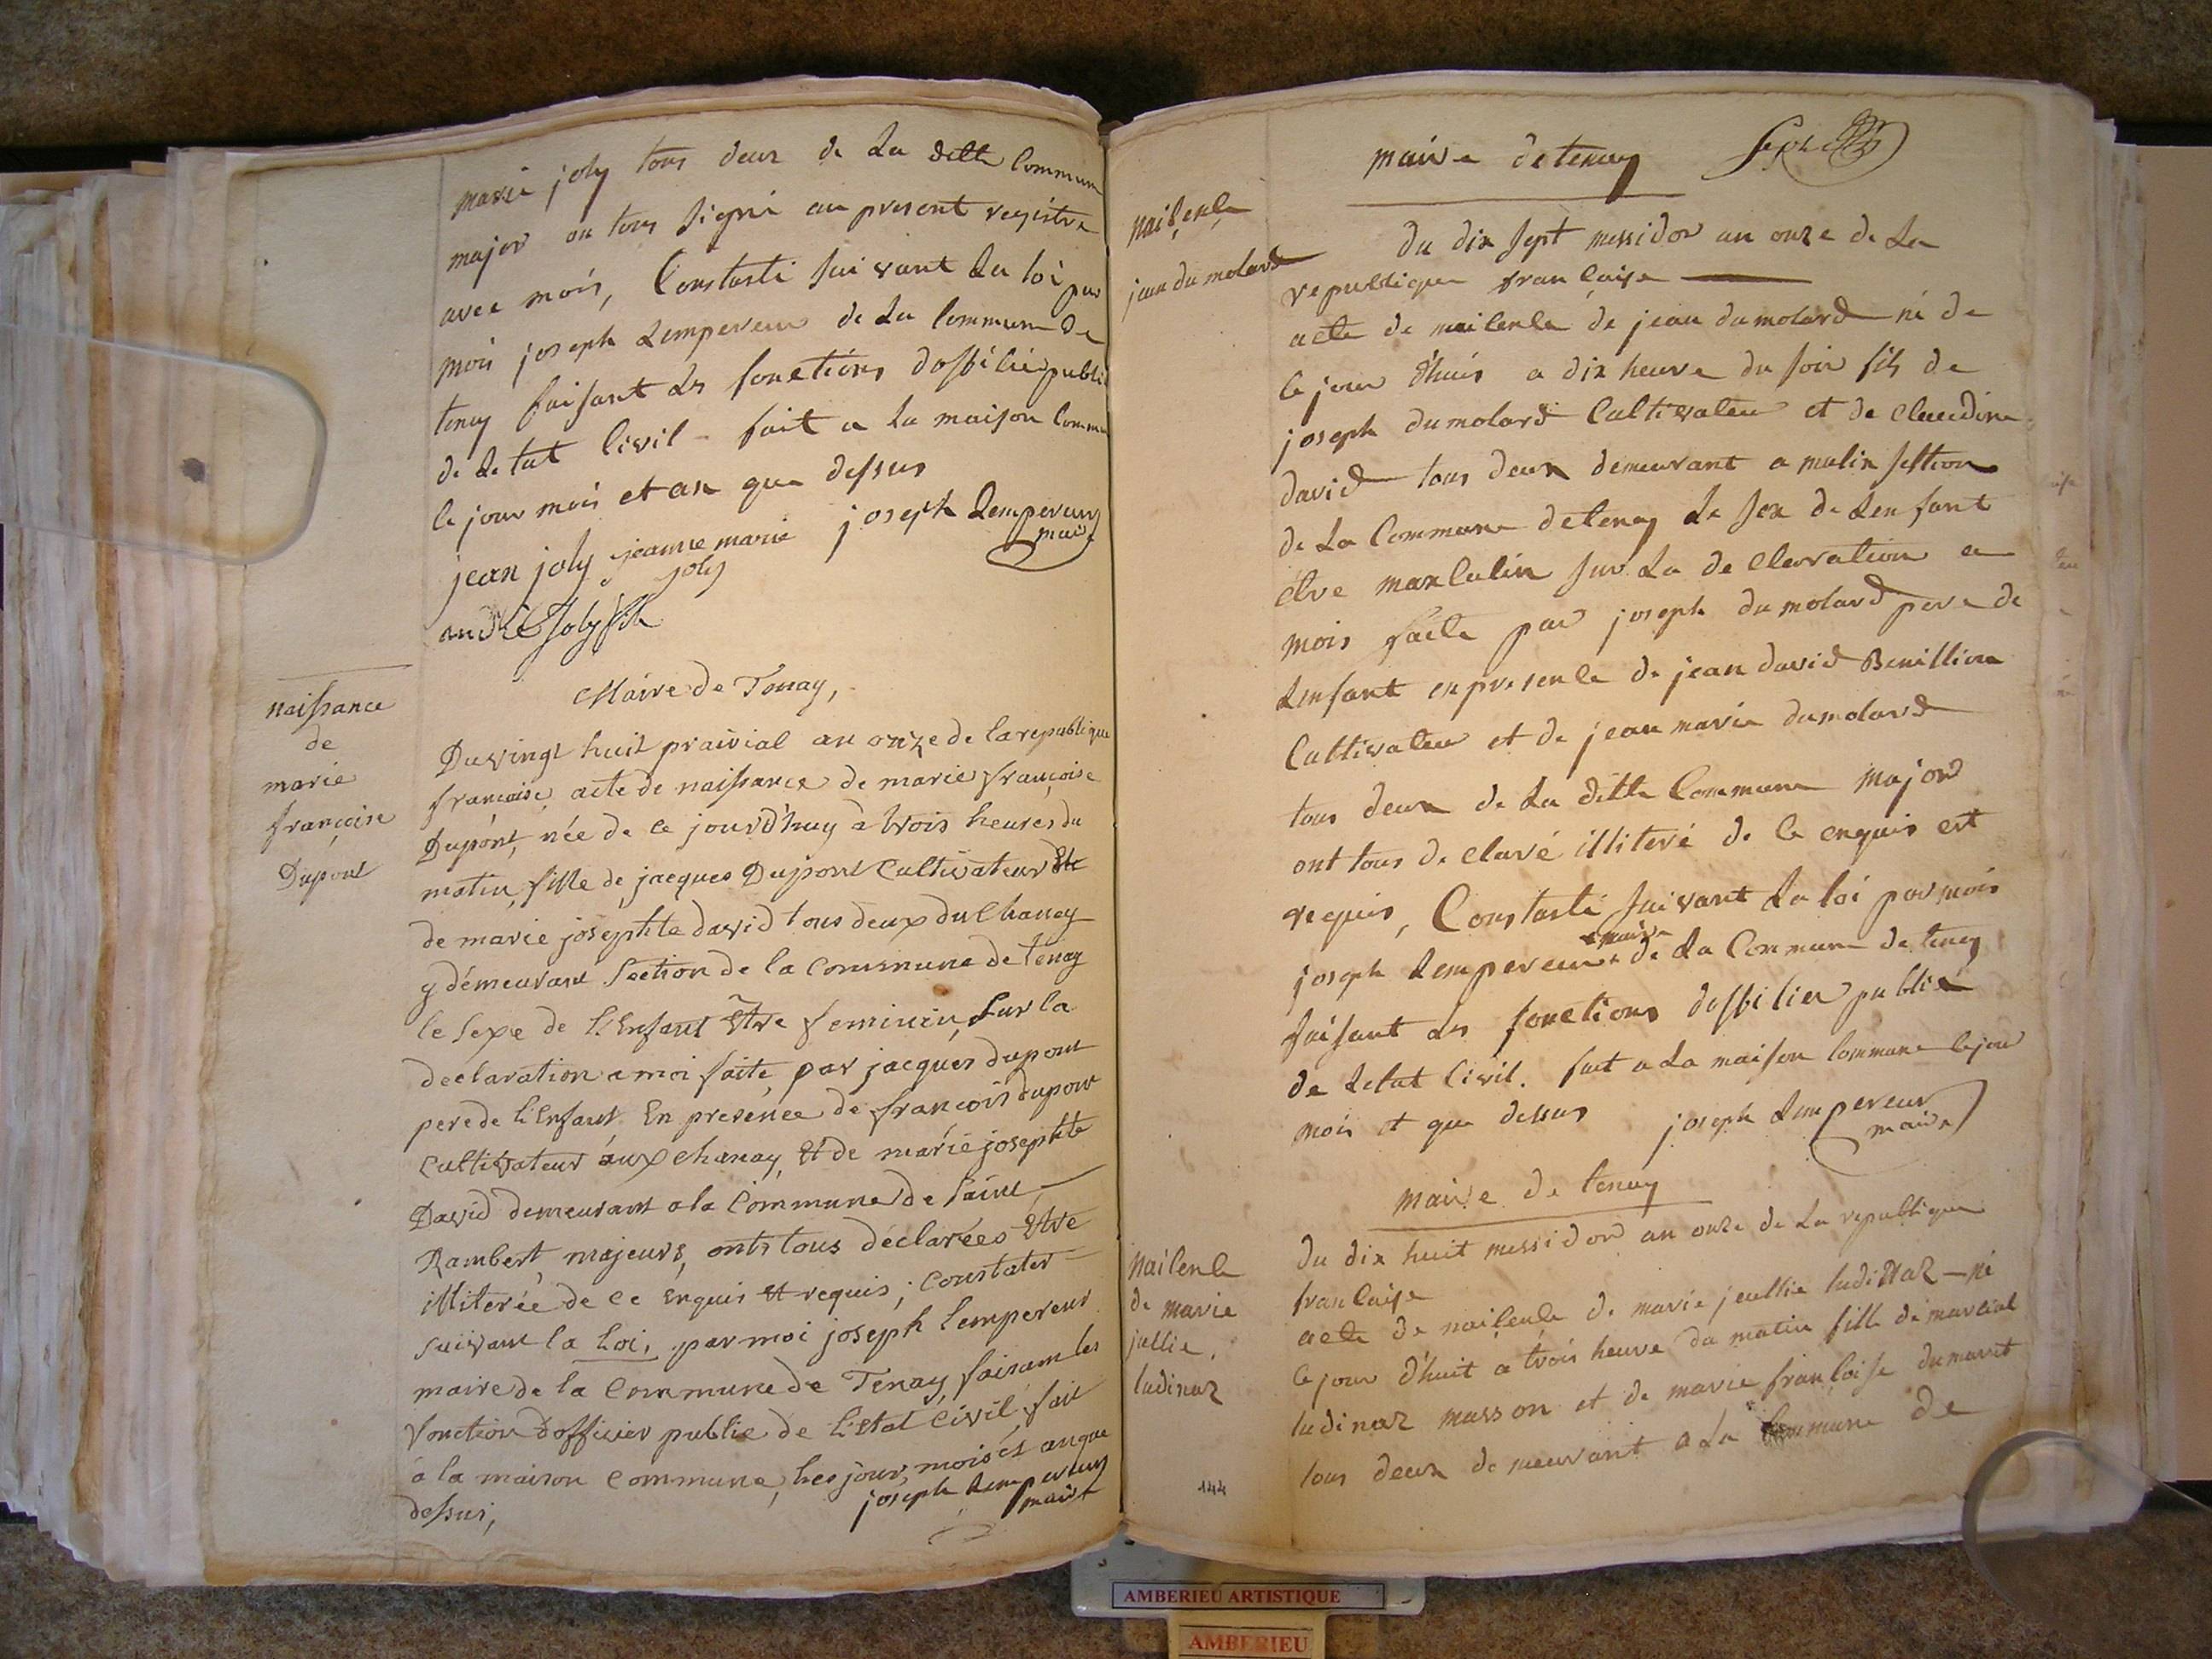 marie joly tous deux de La ditte Commune
major on tous signé au present registre
avec mois, Constasté suivant La loi par
mois joseph Lempereur de La Commune De
tenay faisant Les fonctions dofficier public
de Letat Civil - fait a La maison Commune
le jour mois et an que dessus
jean joly jeanne marie joly joseph Lempereur maire
andré Joly fils
naissance
de
marie
françoise
Dupont
Maire de Tenay,
Du vingt huit prairial an onze de la republique
francaise, acte de naissance de marie françoise
Dupont, née de ce jourd'huy à trois heures du
matin, fille de jacques Dupont Cultivateur Et
de marie josephte david tous deux du Chanay
y démeurant Section de la commune de tenay
le Sexe de L'Enfant Etre feminin, Sur la
declaration a moi faite, par jacques dupont
pere de L'Enfant En presence de françois dupont
Cultivateur aux chanay, Et de marie josephte
David demeurant a la Commune de Saint
Rambert majeurs, onts tous déclarées Etre
illiterée de ce enquis Et requis; Constater
suivant la Loi, par moi joseph Lempereur
maire de la Commune de Tenay, faisant les
fonction d'officier public de L'Etat Civil, fait
à la maison Commune, les jour, mois et an que
dessus, joseph Lempereur maire
maire de tenay
naisence
jean dumolard
du dix sept messidor an onze de La
republique francaise
acte de naicence de jean dumolard né de
ce jour d'huis a dix heure du soir fils de
joseph dumolard Cultivateur et de claudine
david tous deux demeurant a malix sestion
de La Commune de tenay Le sex de Lenfant
etre maxculin sur La de claration a
mois faite par joseph dumolard pere de
Lenfant en presence de jean david
Cultivateur et de jean marie dumolard
tous deux de La ditte Commune major
ont tous de claré illiteré de ce enquis est
requis, Constasté suivant La loi par mois
joseph Lempereur maire de La Commune de tenay
faisant Les fonctions dofficier public
de Letat Civil. fait a La maison Commune le jour
mois et que dessus joseph Lempereur maire
maire de tenay
naicence
de marie
jullie
ludinaz
du dix huit messidor an onze de La republique
francaise
acte de naicence de marie jeullie ludinaz né
ce jour d'huit a trois heure du matin fille de martial
ludinaz masson et de marie françoise dumaret
tous deux demeurant a La Commune de
144
AMBERIEU ARTISTIQUE
AMBERIEU